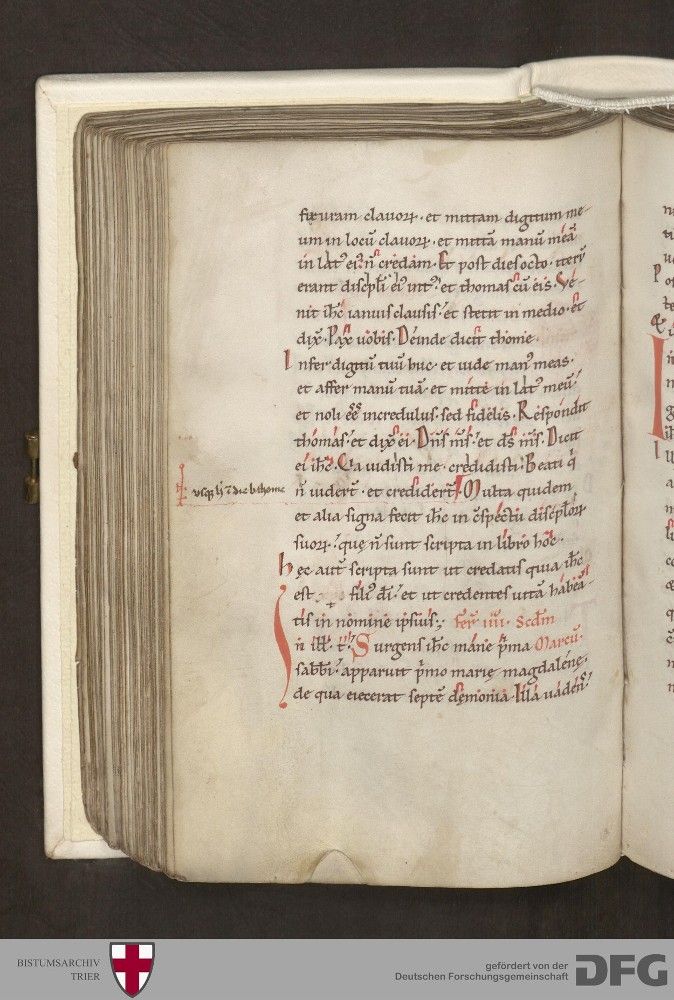 fixuram clauoꝝ · et mittam digitum me
um in locū clauoꝝ · et mittā manū meā
in lat᷒ ei᷒ n̄ credam · Et post dies octo · iterū
erant discipli ei᷒ int᷒ · et thomas cū eis · Ve-
nit ihc̄ ianuis clausis · et stetit in medio · et
dix̄ · Pax uobis · Deinde dicit thome ·
Infer digitū tuū huc · et uide man᷒ meas ·
et affer manū tuā · et mitte in lat᷒ meū ·
et noli eē incredulus · sed fidelis · Respondit
thomas · et dix̄ ei · Dn̄s m̄s · et ds̄ m̄s · Dicit
ei ihc̄ · Q̇a uidisti me · credidisti · Beati q̄
usq; h̄ ī die b thome
n̄ uidert̄ · et credidert̄ Multa quidem
et alia signa fecit ihc̄ in cspectu discipłoꝝ
suoꝝ · quę n̄ sunt scripta in libro hoc ·
hęc aut̄ scripta sunt ut credatis quia ihc̄
est fili᷒ di · et ut credentes uitā habea-
tis in nomine ipsius · fer̄ iiii · Scdm
In ill̄ · t̄ · Surgens ihc̄ mane p̄ma Marcū ·
sabbi · apparuit p̄mo marię magdalenę ·
de qua eiecerat septē demonia · Illa uaden᷒
BISTUMSARCHIV
TRIER
gefördert von der
Deutschen Forschungsgemeinschaft
DFG